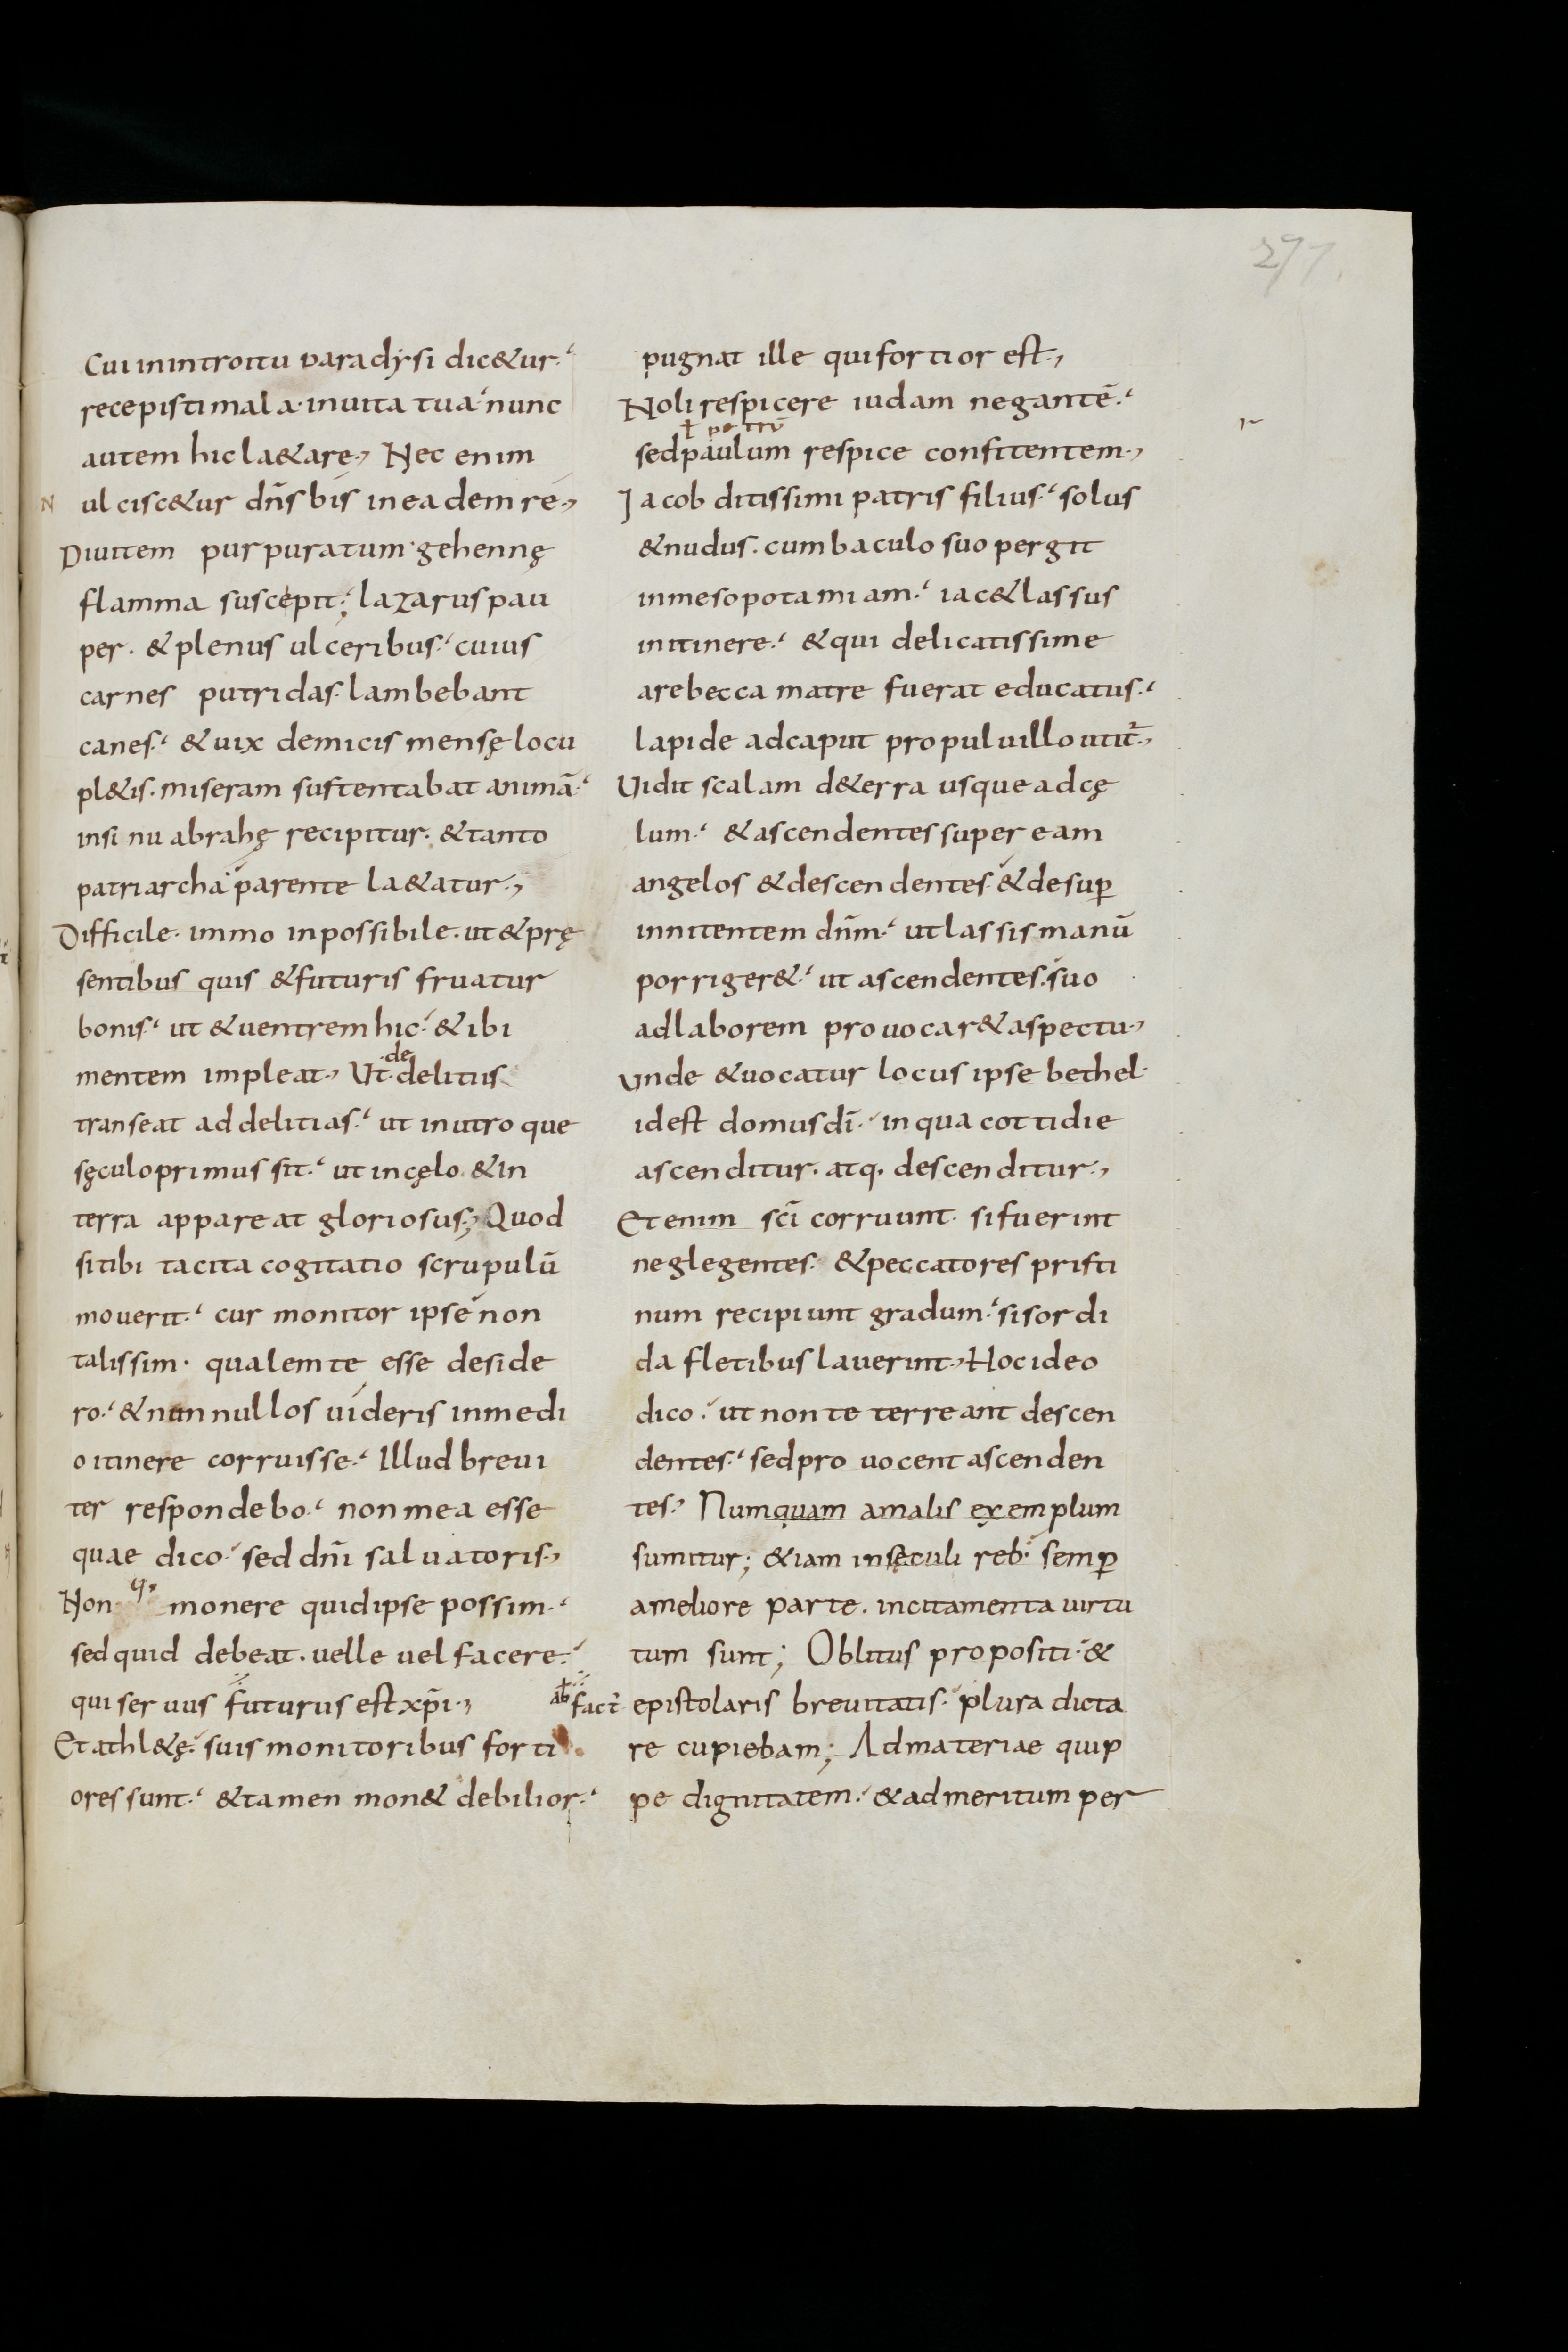 297
Cui inintroitu paradysi dic&ur.
recepisti mala. inuita tua. nunc
autem hic la&are., Nec enim
N ulcisc&ur dn̄s bis ineadem re.,
Diuitem purpuratum. gehennę
flamma suscepit; lazarus pau
per. & plenus ulceribus. cuius
carnes putridas. lambebant
canes. & uix demicis mensę locu
pl&is. miseram sustentabat animā.
insinu abrahę recipitur. & tanto
patriarcha parente la&atur.,
Difficile. immo inpossibile. ut & prę
sentibus quis & futuris fruatur
bonis. ut & uentrem hic. & ibi
de
mentem impleat., Ut. delitiis
transeat ad delitias. ut inutroque
sęculo primus sit. ut incęlo & in
terra appareat gloriosus., Quod
sitibi tacita cogitatio scrupulū
mouerit. cur monitor ipse non
talis sim. qualem te esse deside
ro. & nunnullos uideris inmedi
o itinere corruisse. Illud breui
ter respondebo. non mea esse
quae dico. sed dn̄i saluatoris.,
Non q. monere quid ipse possim.
sed quid debeat. uelle uel facere.
qui seruus futurus est xp̄i., ab fact
Et athl&ę. suis monitoribus forti
ores sunt. & tamen mon& debilior.
pugnat ille qui fortior est.,
Noli respicere iudam negantē.
ł petrū
sed paulum respice confitentem.,
Jacob ditissimi patris filius. solus
& nudus. cum baculo suo pergit
inmesopotamiam. iac& lassus
initinere. & qui delicatissime
arebecca matre fuerat educatus.
lapide adcaput propuluillo utit̄.,
Uidit scalam d&erra usque adcę
lum. & ascendentes super eam
angelos & descendentes. & desup̄
innitentem dn̄m. ut lassis manū
porriger&. ut ascendentes. suo
adlaborem prouocar& aspectu.,
Unde & uocatur locus ipse bethel.
idest domus dī. inqua cottidie
ascenditur. atq. descenditur.,
Etenim sc̄i corruunt. si fuerint
neglegentes. & peccatores pristi
num recipiunt gradum. si sordi
da fletibus lauerint., Hoc ideo
dico. ut non te terreant descen
dentes. sed prouocent ascenden
tes., Numquam amalis exemplum
sumitur; &iam insęculi reb. semp̄
ameliore parte. incitamenta uirtu
tum sunt; Oblitus propositi. &
epistolaris breuitatis. plura dicta
re cupiebam; Admateriae quip
pe dignitatem. & admeritum per